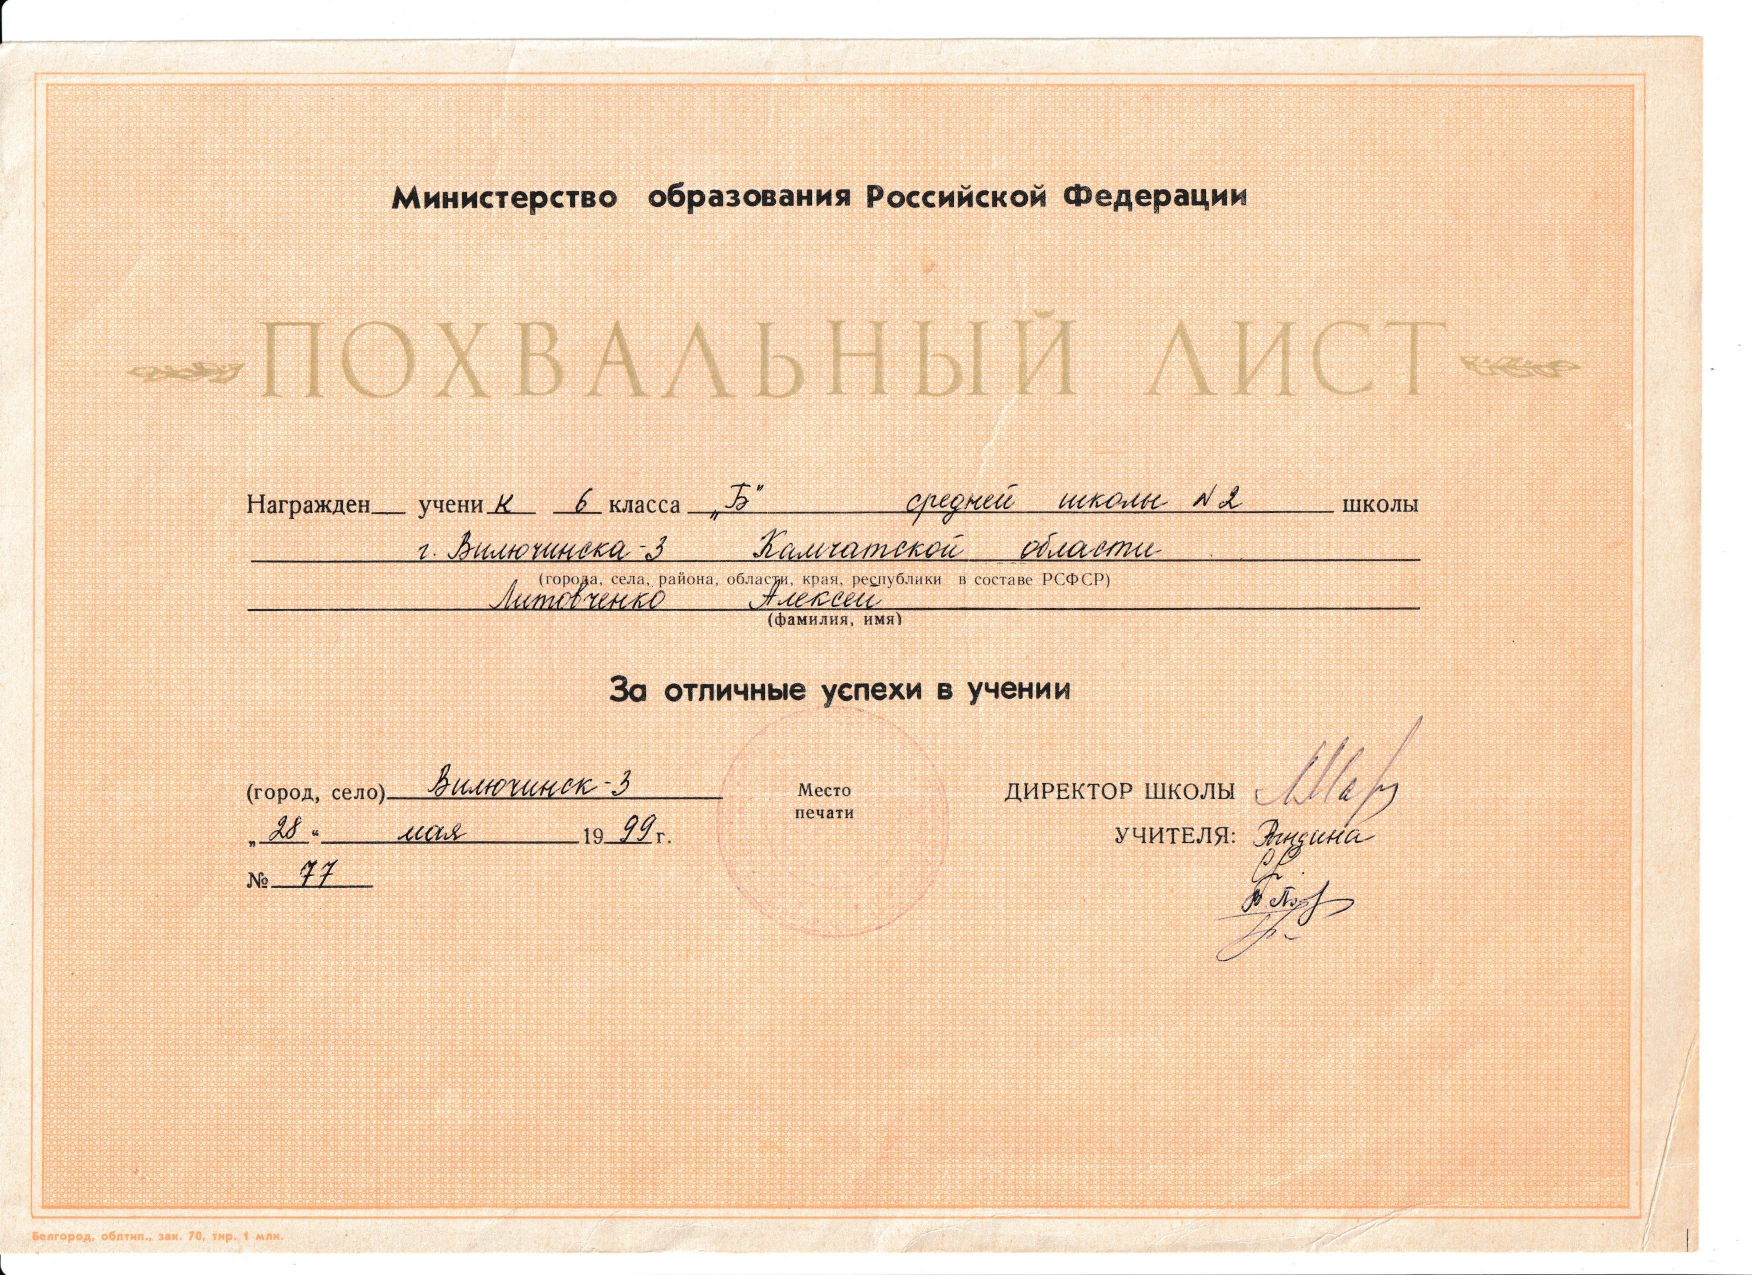 Министерство образования Российской Федерации
ПОХВАЛЬНЫЙ ЛИСТ
Награжден__ учени к 6 класса „Б“ средней школы N2 школы
г. Вилючинска-3 Камчатской области
(города, села, района, области, края, республики в составе РСФСР)
Литовченко Алексей
(фамилия, имя)
За отличные успехи в учении
(город, село) Вилючинск-3
Место печати
ДИРЕКТОР ШКОЛЫ
„28“ мая 1999 г.
УЧИТЕЛЯ:
№ 77
Белгород, обптип., зак. 70, тир. 1 млн.